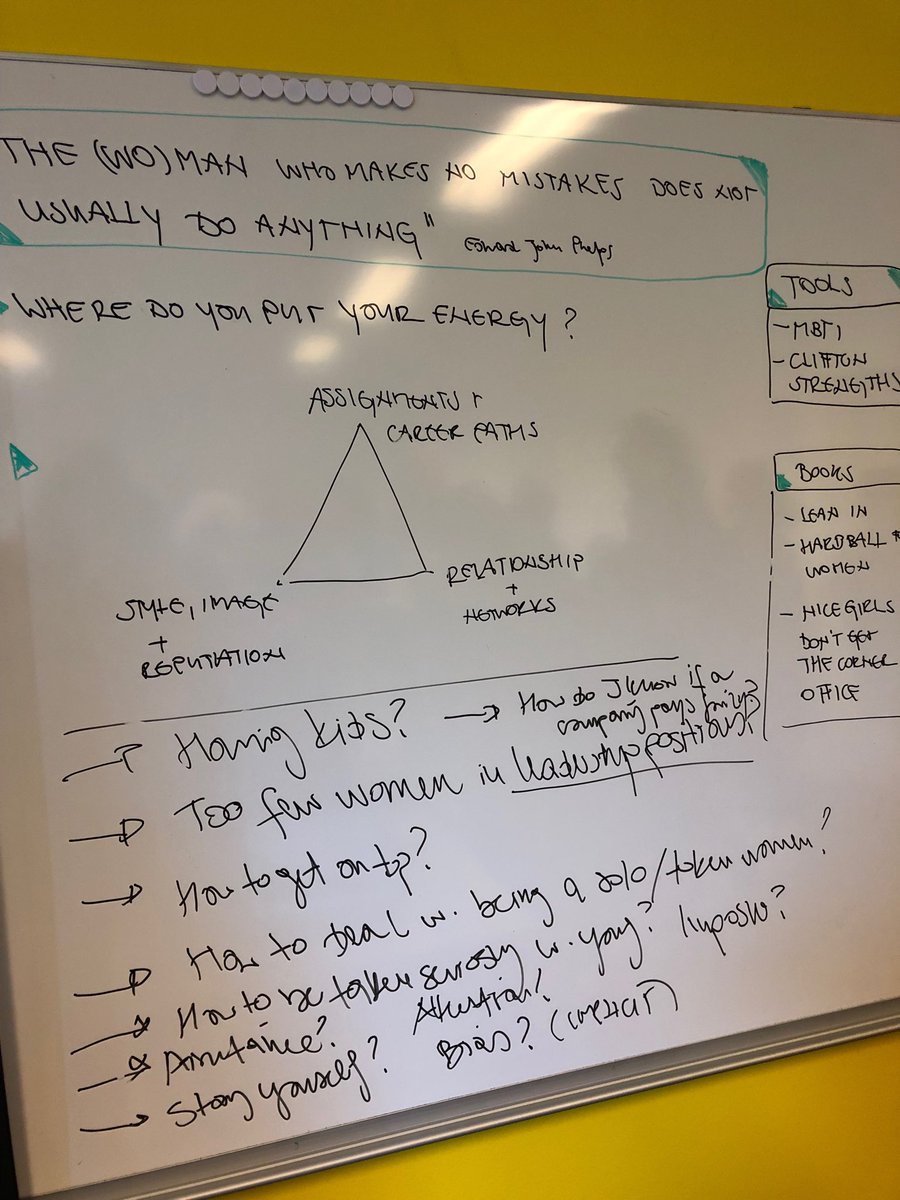 THE (WO)MAN WHO MAKES NO MISTAKES DOES NOT
USUALLY DO ANYTHING"
Edward John Phelps
WHERE DO YOU PUT YOUR ENERGY?
ASSIGNMENTS +
CAREER PATHS
RELATIONSHIP
+
NETWORKS
STYLE, IMAGE
+
REPUTATION
TOOLS
- MBTI
- CLIFTON
STRENGTHS
BOOKS
- LEAN IN
- HARDBALL
WOMEN
- NICE GIRLS
DON'T GET
THE CORNER
OFFICE
→ Having kids? → How do I know if a
company pays fairly?
→ Too few women in leadership positions?
→ How to get on top?
→ How to deal w. being a solo/token women?
→ How to be taken seriously w. young?
→ Attention?
→ Stay yourself? Bias? (IMPLICIT)